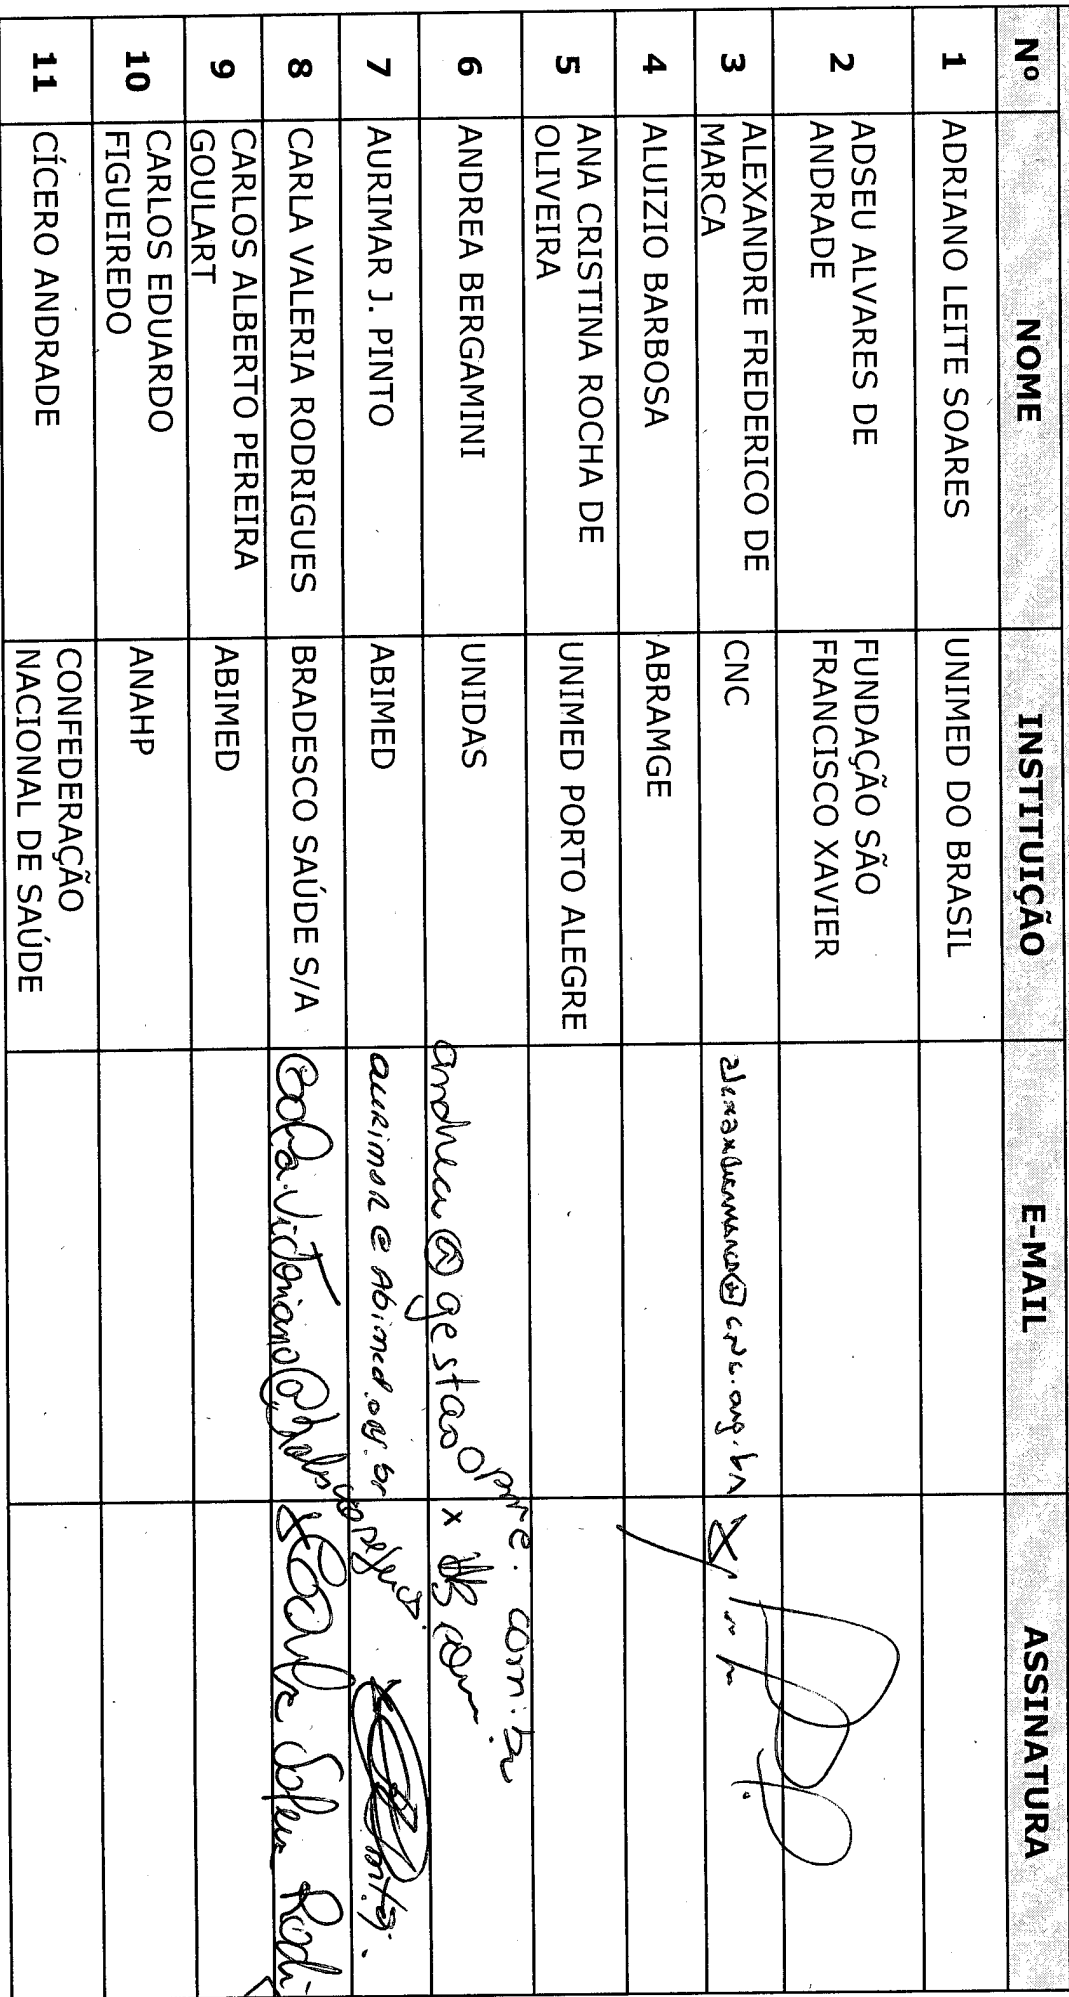 Nº NOME INSTITUIÇÃO E-MAIL ASSINATURA
1 ADRIANO LEITE SOARES UNIMED DO BRASIL
2 ADSEU ALVARES DE
ANDRADE
FUNDAÇÃO SÃO
FRANCISCO XAVIER
3 ALEXANDRE FREDERICO DE
MARCA
CNC
4 ALUIZIO BARBOSA ABRAMGE
5 ANA CRISTINA ROCHA DE
OLIVEIRA
UNIMED PORTO ALEGRE
6 ANDREA BERGAMINI UNIDAS andrea@gestaoopme.com.br
7 AURIMAR J. PINTO ABIMED aurimar@abimed.org.br
8 CARLA VALERIA RODRIGUES BRADESCO SAÚDE S/A
9 CARLOS ALBERTO PEREIRA
GOULART
ABIMED
10 CARLOS EDUARDO
FIGUEIREDO
ANAHP
11 CÍCERO ANDRADE
CONFEDERAÇÃO
NACIONAL DE SAÚDE